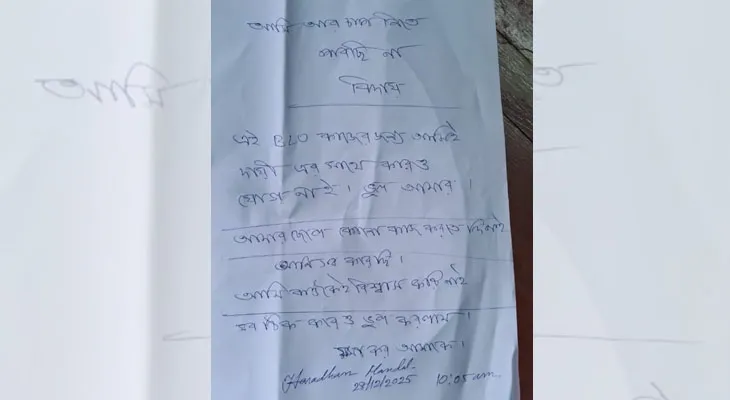 আমি আর চাপ নিতে
পারছি না
বিদায়
এই BLO কাজের জন্য আমিই
দায়ী এর সাথে কারও
যোগ নাই। ভুল আমার।
আমার ছেলে কোনো কাজ করতে দিই নাই
আমি সব করেছি।
আমি কাউকেই বিশ্বাস করি নাই
সব ঠিক করেও ভুল করলাম।
ক্ষমা কর আমাকে।
Haradhan Mandal.
28/12/2025 10:05 am.